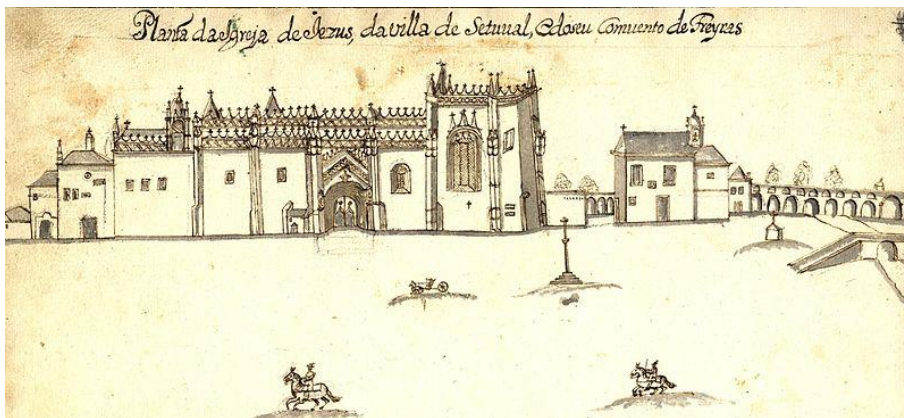 Planta da Igreja de Jezus, da villa de Setuval, e do seu Comuento de Freyras